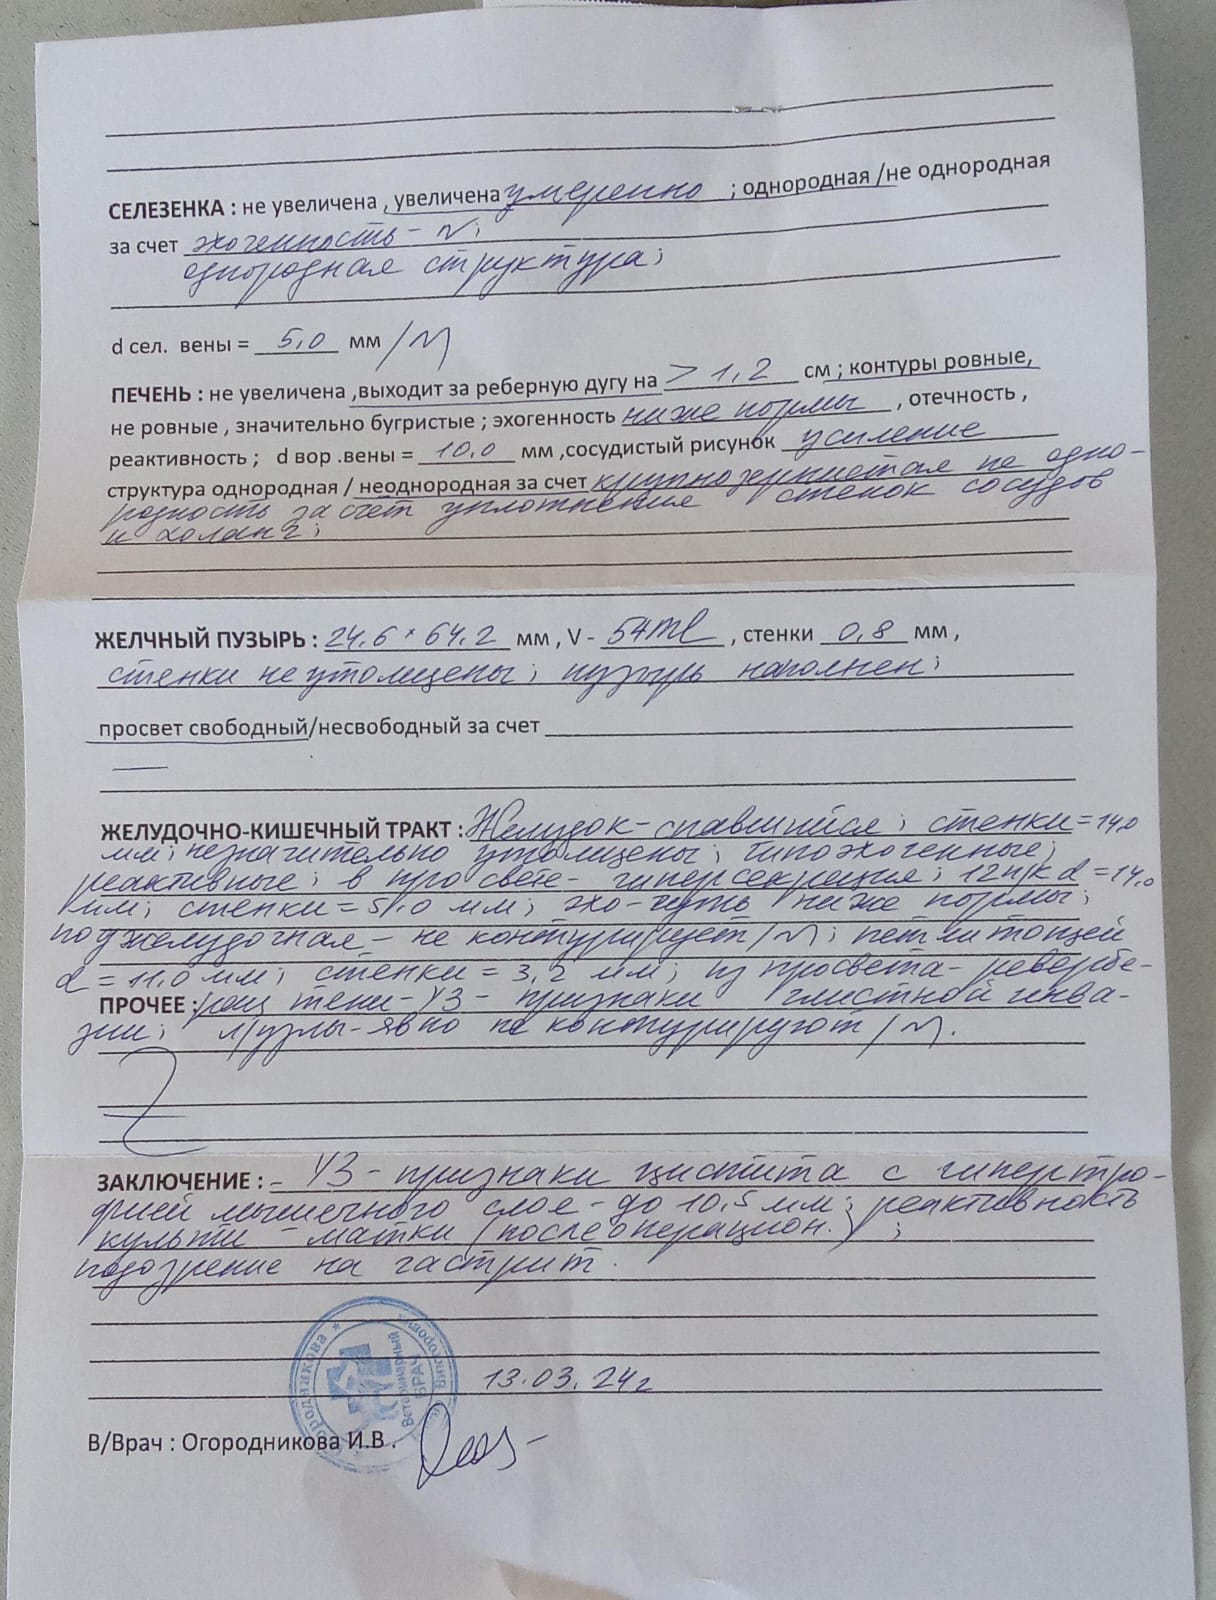 СЕЛЕЗЕНКА : не увеличена , увеличена умеренно ; однородная /не однородная
за счет эхогенность - N;
однородная структура;
d сел. вены = 5,0 мм /N
ПЕЧЕНЬ : не увеличена ,выходит за реберную дугу на > 1,2 см ; контуры ровные,
не ровные , значительно бугристые ; эхогенность ниже нормы , отечность ,
реактивность ; d вор .вены = 10,0 мм ,сосудистый рисунок усиление
структура однородная / неоднородная за счет крупнозернистая не одно-
родность за счёт уплотнения стенок сосудов
и холанг;
ЖЕЛЧНЫЙ ПУЗЫРЬ : 24,6 × 64,2 мм , V - 54ml , стенки 0,8 мм ,
стенки не утолщены; пузырь наполнен;
просвет свободный/несвободный за счет
ЖЕЛУДОЧНО-КИШЕЧНЫЙ ТРАКТ : Желудок - спавшийся; стенки = 14,0
мм; незначительно утолщены; гипоэхогенные;
реактивные; в просвете - гиперсекреция; 12п/к d = 14,0
мм; стенки = 5,0 мм; эхо-чуть ниже нормы;
поджелудочная - не контурирует /N; петли тощей
d = 11,0 мм; стенки = 3,2 мм; из просвета - ревербе-
ПРОЧЕЕ : рац тени - УЗ - признаки глистной инва-
зии; л/узлы - явно не контурируют /N.
ЗАКЛЮЧЕНИЕ : - УЗ - признаки цистита с гипертро-
фией мышечного слоя - до 10,5 мм; реактивность
культи - матки (послеоперацион.);
подозрение на гастрит.
Ветеринарный
ВРАЧ
13.03.24г
В/Врач : Огородникова И.В .